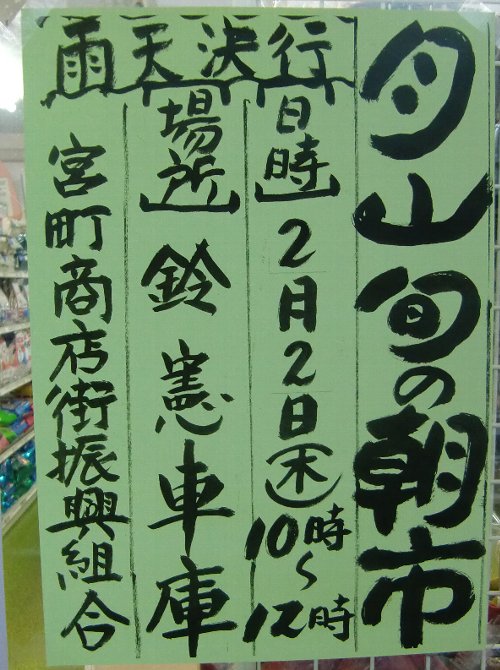 月山旬の朝市
日時 2月2日(木)10時~12時
場所 鈴憲車庫
雨天決行
宮町商店街振興組合